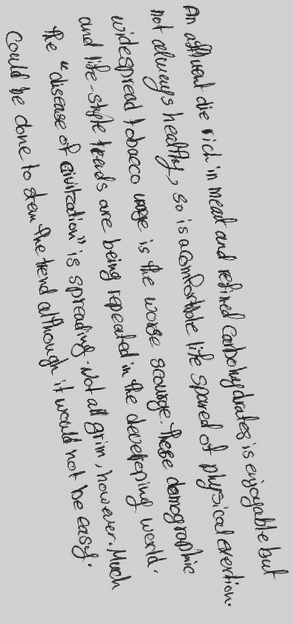 An affluent die rich in meat and refined carbohydrates is enjoyable but
not always healthy, so is a comfortable life spared of physical exertion.
widespread tobacco usage is the worse scourge. These demographic
and life-style trends are being repeated in the developing world.
the "disease of civilization" is spreading. Not all grim, however. Much
Could be done to stem the trend although it would not be easy.